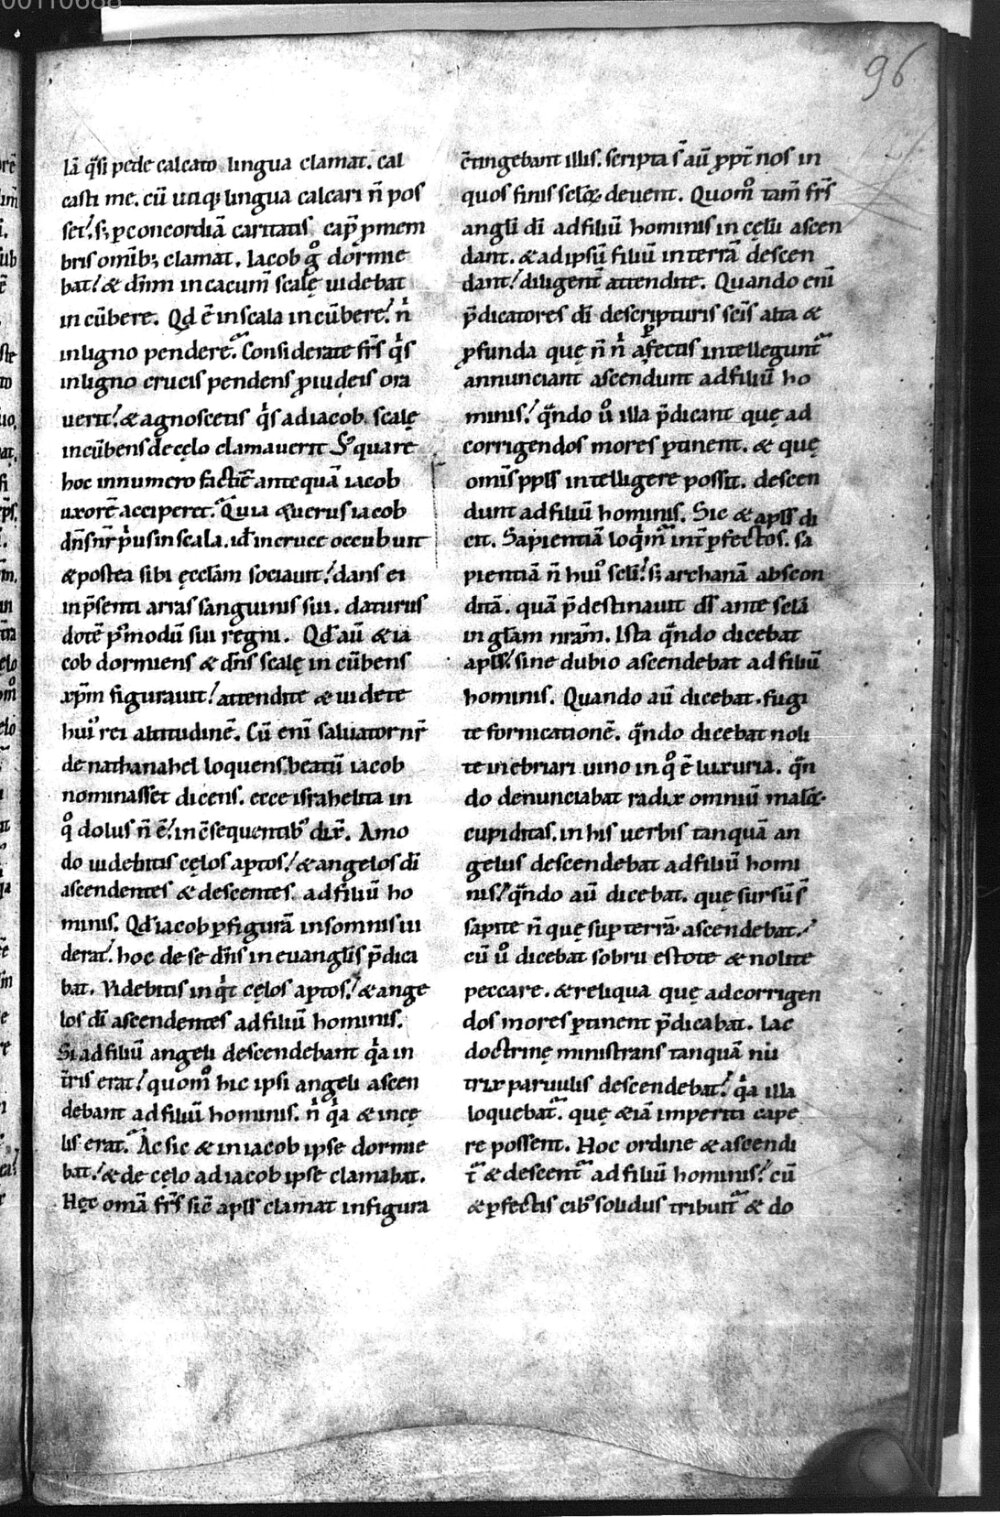 96
lā q̄si pede calcato lingua clamat. cal
casti me. cū utiq; lingua calcari n̄ pos
set! s; p concordiā caritatis cap̄ p mem
brís omīb; clamat. Iacob g̊ dormie
bat! & dn̄m in cacum̄ scalę uidebat
incūbere. Qd ē in scala incūbere! n̄
in ligno pendere. Considerate frs̄ q̄s
in ligno crucis pendens p iudeis ora
uerit! & agnoscetis q̄s ad iacob. scalę
incūbens de cęlo clamauerit Sꝫ quare
hoc in numero factū ē ante quā iacob
uxorē acciperet. Quia q̄ uerus iacob
dn̄s nr̄ p̄us in scala. id in cruce occubuit
& postea sibi ęcclām sociauit! dans ei
in p̄senti arras sanguinis sui. daturus
dotē p̊modū sui regni. Qd aū & ia
cob dormiens & dn̄s scalę incūbens
xp̄m figurauit! attendite & uidete
hui᷒ rei altitudinē. Cū enī saluator nr̄
de nathanahel loquens beatū iacob
nominasset dicens. ecce israhelita in
q̊ dolus n̄ ē! in c̄sequentib᷒ dix̄. Amo
do uidebitis cęlos aptos! & angelos dī
ascendentes & descentes ad filiū ho
minis. Qd iacob p figurā in somnis ui
derat! hoc de se dn̄s in euangl̄is p̄dica
bat. Videbitis inq̄t cęlos aptos! & ange
los dī ascendentes ad filiū hominis.
Si ad filiū angeli descendebant q̄a in
tr̄is erat! quom̊ hic ipsi angeli ascen
debant ad filiū hominis. n̄ q̄a & in cę
lis erat. Ac sic & in iacob ipse dormie
bat! & de cęlo ad iacob ipse clamabat.
Hęc omā frs̄ sic̄ apls̄ clamat in figura
c̄tingebant illis. scripta s̄ aū ppt̄ nos in
quos finis selꝝ deuent. Quom̊ tam̄ frs̄
angl̄i dī ad filiū hominis in cęlū ascen
dant. & ad ipsū filiū in terrā descen
dant! diligent̄ attendite. Quando enī
p̄dicatores dī de scripturis sc̄is alta &
pfunda quę n̄ n̄ a pfectis intellegunt̄
annunciant ascendunt ad filiū ho
minis! q̄ndo ů illa p̄dicant quę ad
corrigendos mores ptinent. & quę
om̄s ppls̄ intelligere possit. descen
dunt ad filiū hominis. Sic & apls̄ di
cit. Sapientiā loq̄m̄ int̄ pfectos. sa
pientiā n̄ hui᷒ selī! s; archanā abscon
ditā. quā p̄destinauit dī ante sela
in glām nrām. Ista q̄ndo dicebat
apls̄! sine dubio ascendebat ad filiū
hominis. Quando aū dicebat. fugi
te fornicationē. q̄ndo dicebat noli
te inebriari uino in q̊ ē luxuria. q̄n
do denunciabat radix omniū malꝝ
cupiditas. in his uerbis tanquā an
gelus descendebat ad filiū homi
nis! q̄ndo aū dicebat. quę sursū s̄
sapite n̄ quę sup terrā ascendebat!
cū ů dicebat sobrii estote & nolite
peccare. & reliqua quę ad corrigen
dos mores ptinent p̄dicabat. lac
doctrinę ministrans tanquā nu
trix paruulis descendebat! q̄a illa
loquebat̄. quę &iā imperiti cape
re possent. Hoc ordine & ascendi
t̄ & descent̄ ad filiū hominis! cū
& pfectis cib᷒ solidus tribuit̄ & do